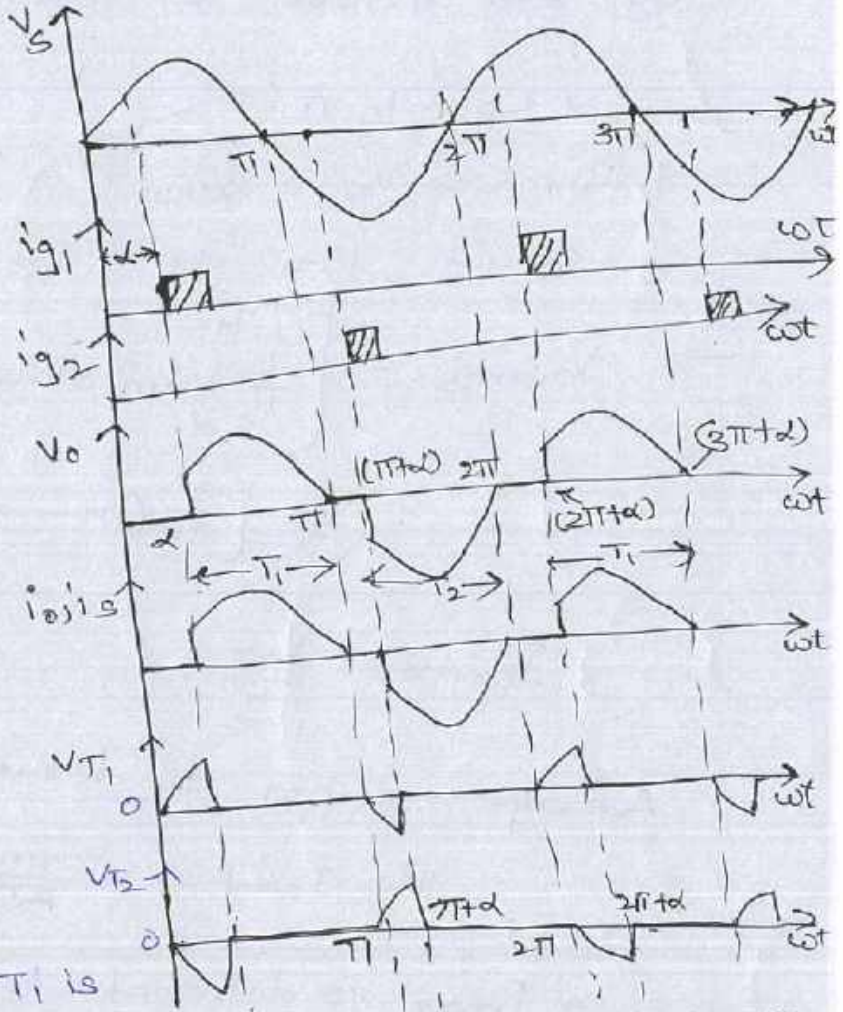 Vs
π 2π 3π ωt
ig1 α ωt
ig2 ωt
Vo (π+α) 2π (3π+α)
α π (2π+α) ωt
T1 T2 T1
io, is ωt
VT1
0 ωt
VT2 π+α 2π+α
0 π 2π ωt
T1 is